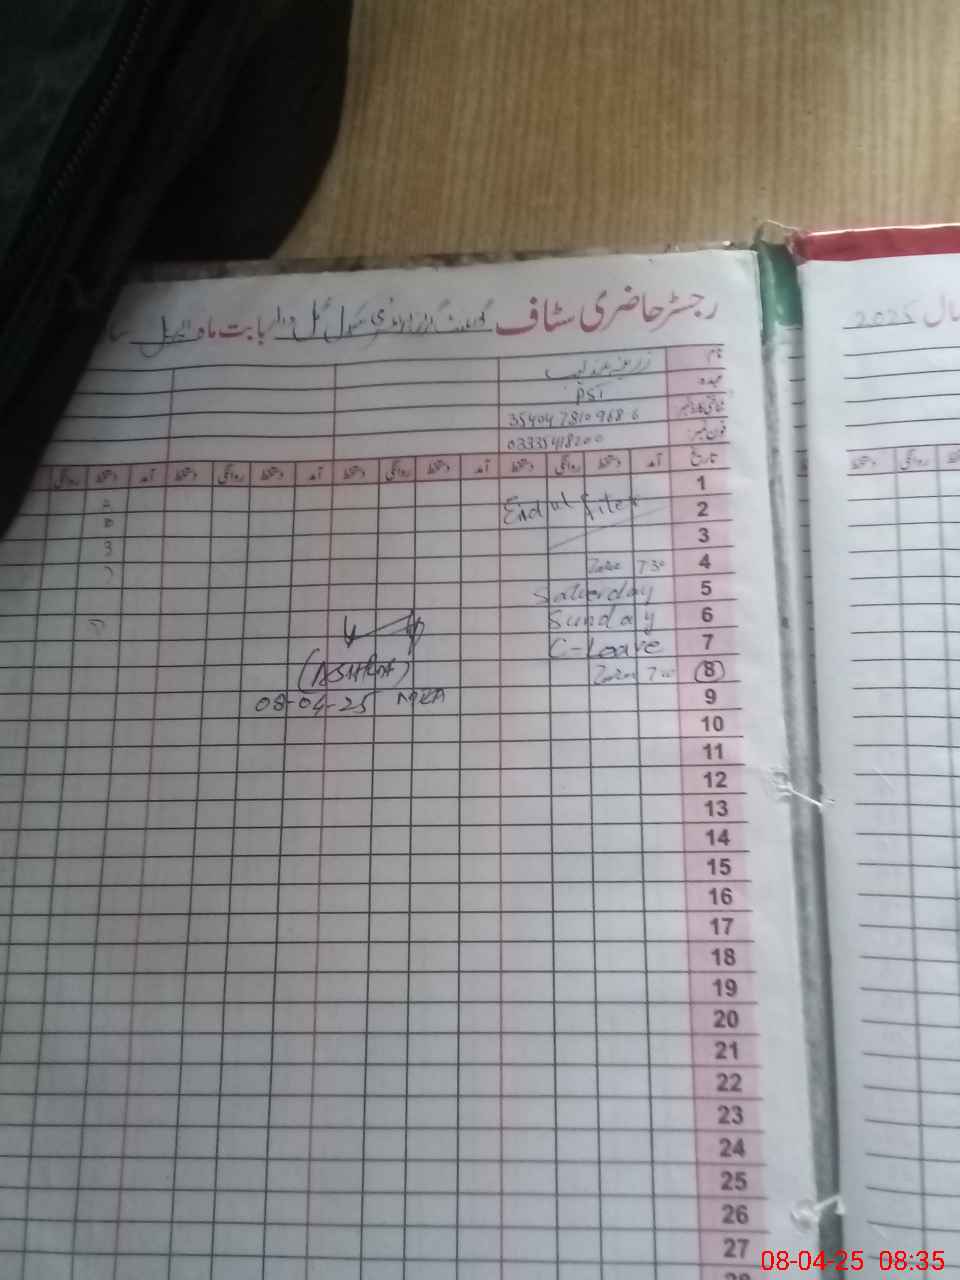 رجسٹر حاضری سٹاف گورنمنٹ گرلز پرائمری سکول بابت ماہ اپریل
سال 2025
نام
عہدہ PST
شناختی کارڈ نمبر 35404 7810968 6
فون نمبر 03335418200
تاریخ آمد دستخط روانگی دستخط آمد دستخط روانگی دستخط آمد دستخط روانگی دستخط آمد دستخط روانگی
1
2 End ul fiter
3
4 7:30
5 Saturday
6 Sunday
7 C-Leave
8
(ASHRAF)
9
08-04-25 MEA
10
11
12
13
14
15
16
17
18
19
20
21
22
23
24
25
26
27
28
08-04-25 08:35